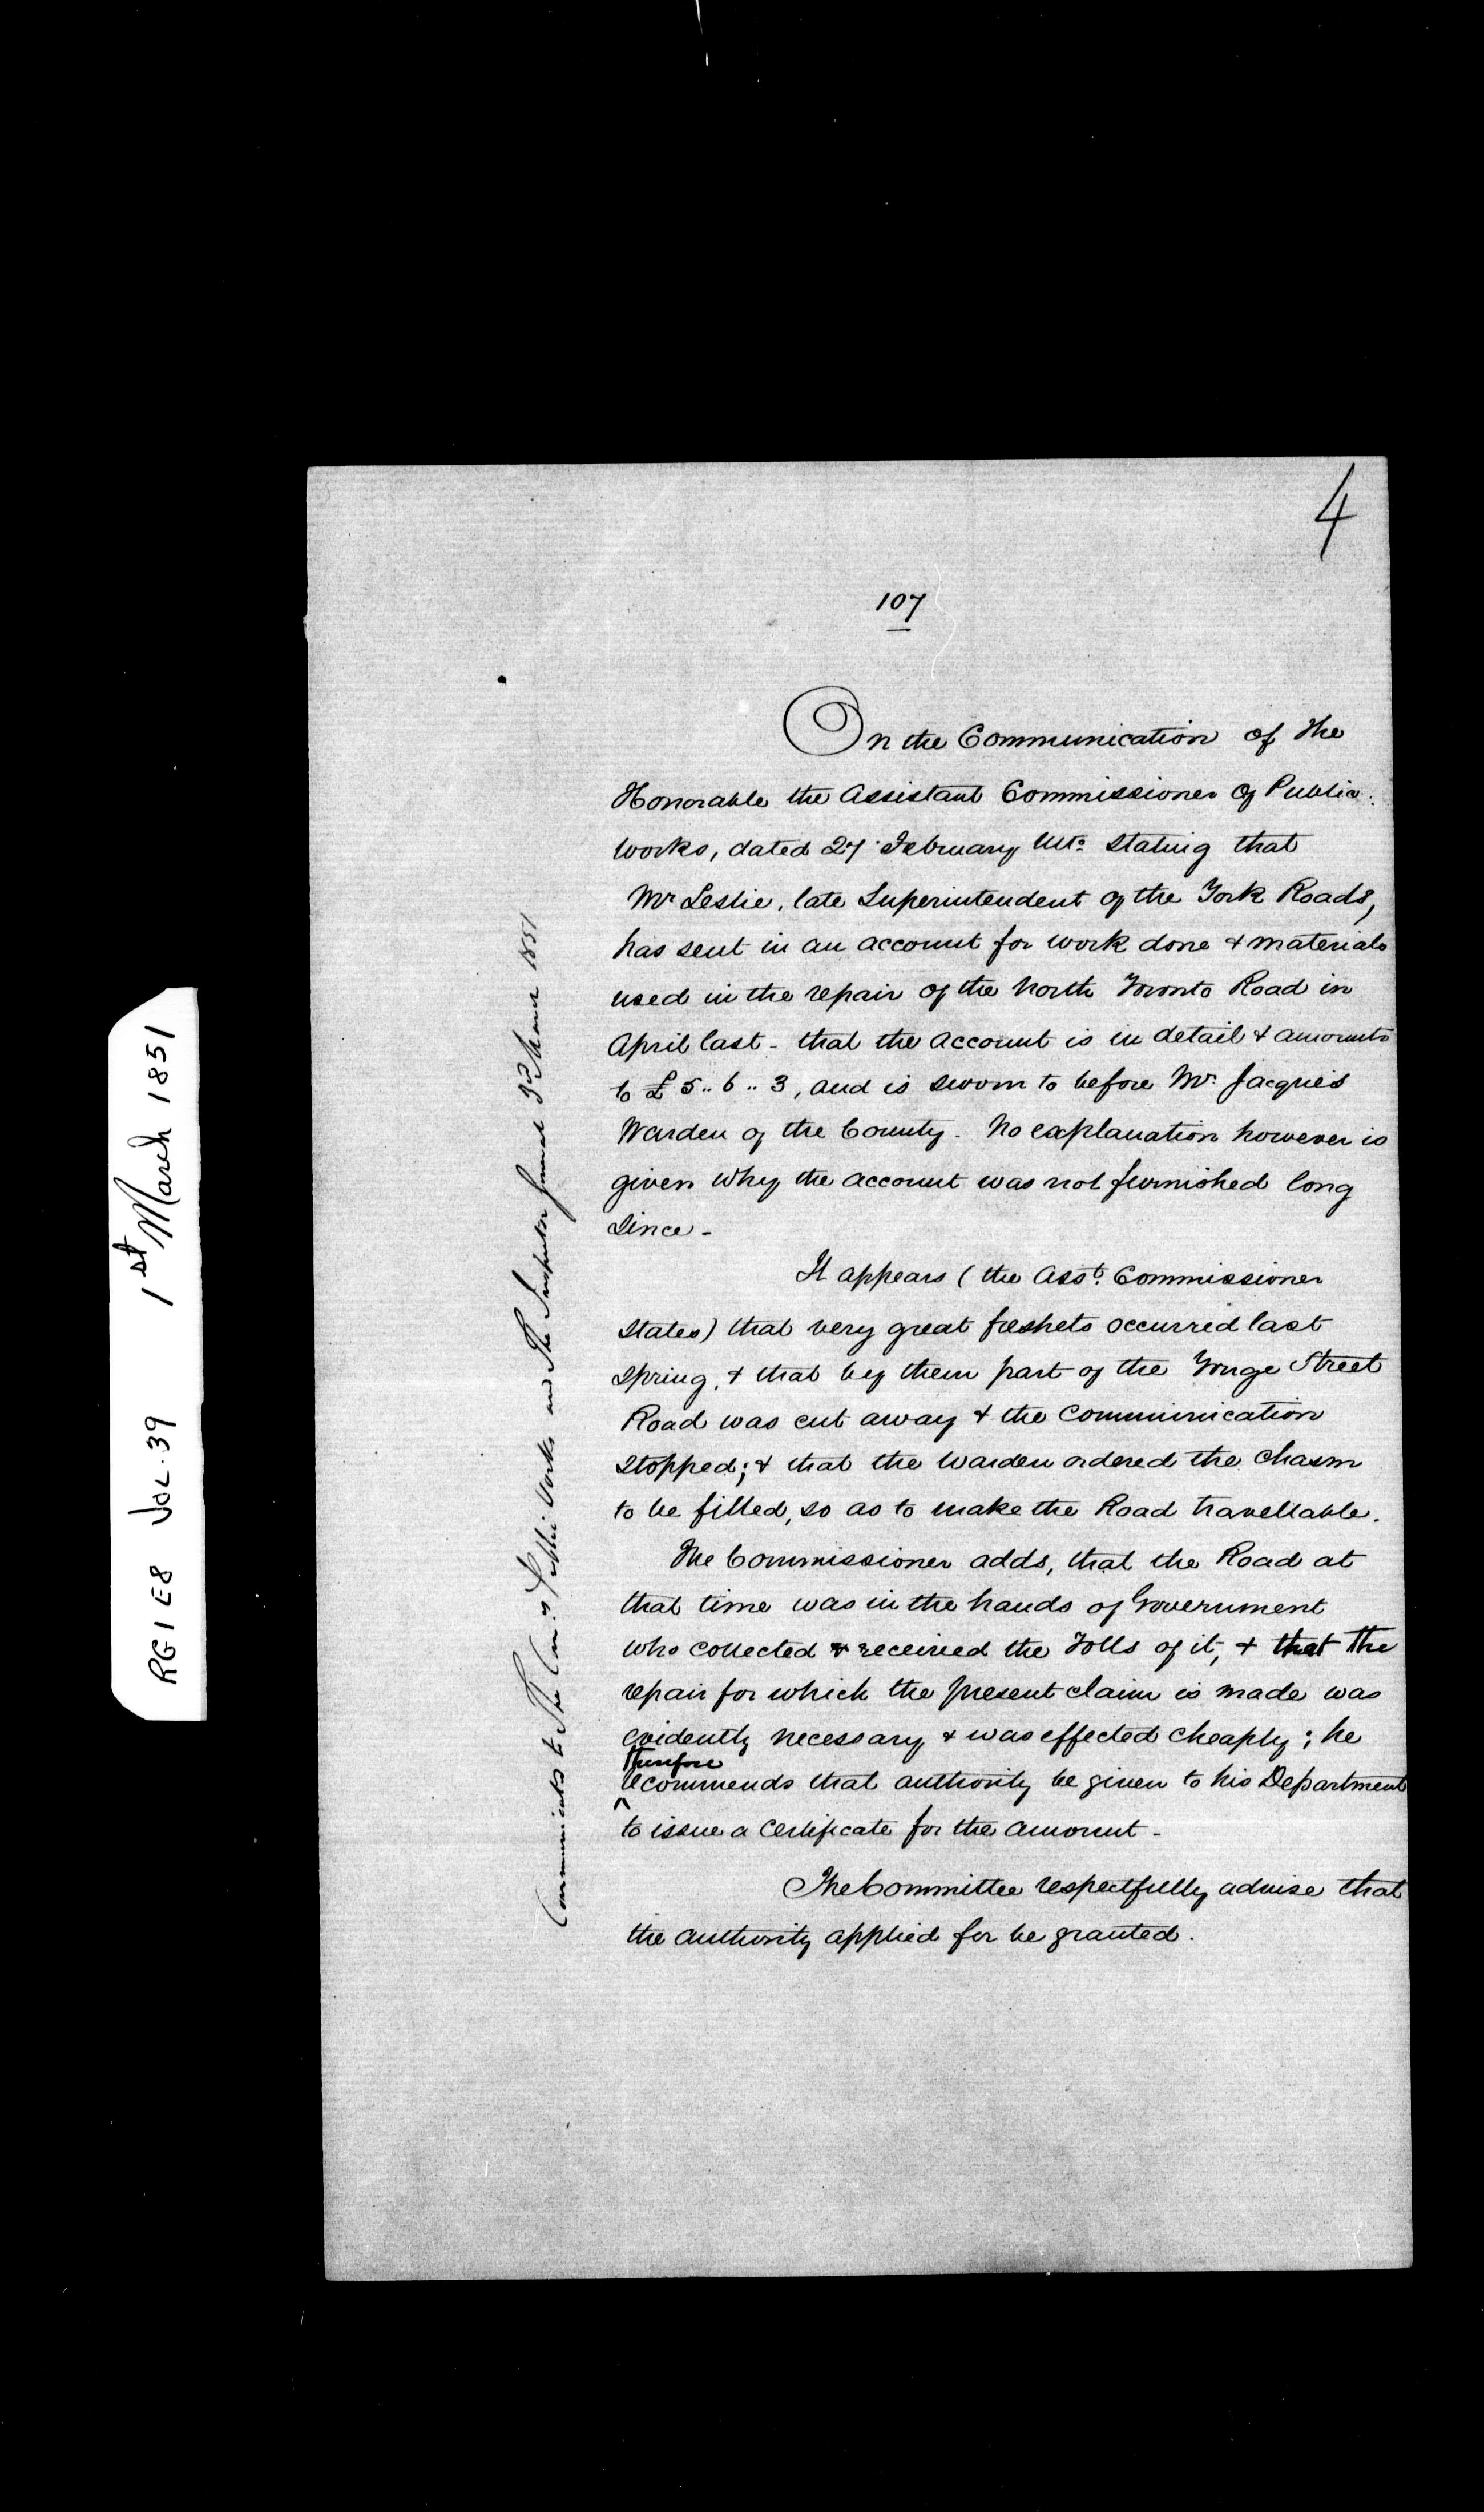 4
107
On the Communication of the
Honorable the Assistant Commissioner of Public
Works, dated 27 February ulto stating that
Mr Leslie, late Superintendent of the York Roads,
has sent in an account for work done & materials
used in the repair of the North Toronto Road in
April last - that the account is in detail & amounts
to £5..6..3, and is sworn to before Mr. Jacques
Warden of the County. No explanation however is
given why the account was not furnished long
since -
It appears (the Asst. Commissioner
States) that very great freshets occurred last
Spring, & that by them part of the Yonge Street
Road was cut away & the Communication
stopped; & that the Warden ordered the chasm
to be filled, so as to make the Road travellable.
The Commissioner adds, that the Road at
that time was in the hands of Government
who collected & received the Tolls of it, & that the
repair for which the present claim is made was
evidently necessary & was effected cheaply; he
therefore
^ recommends that authority be given to his Department
to issue a Certificate for the amount -
The Committee respectfully advise that
the authority applied for be granted.
Communicated to The Com. of Public Works and The Inspector General 3rd March 1851
RG1 E8 VOL. 39 1st March 1851